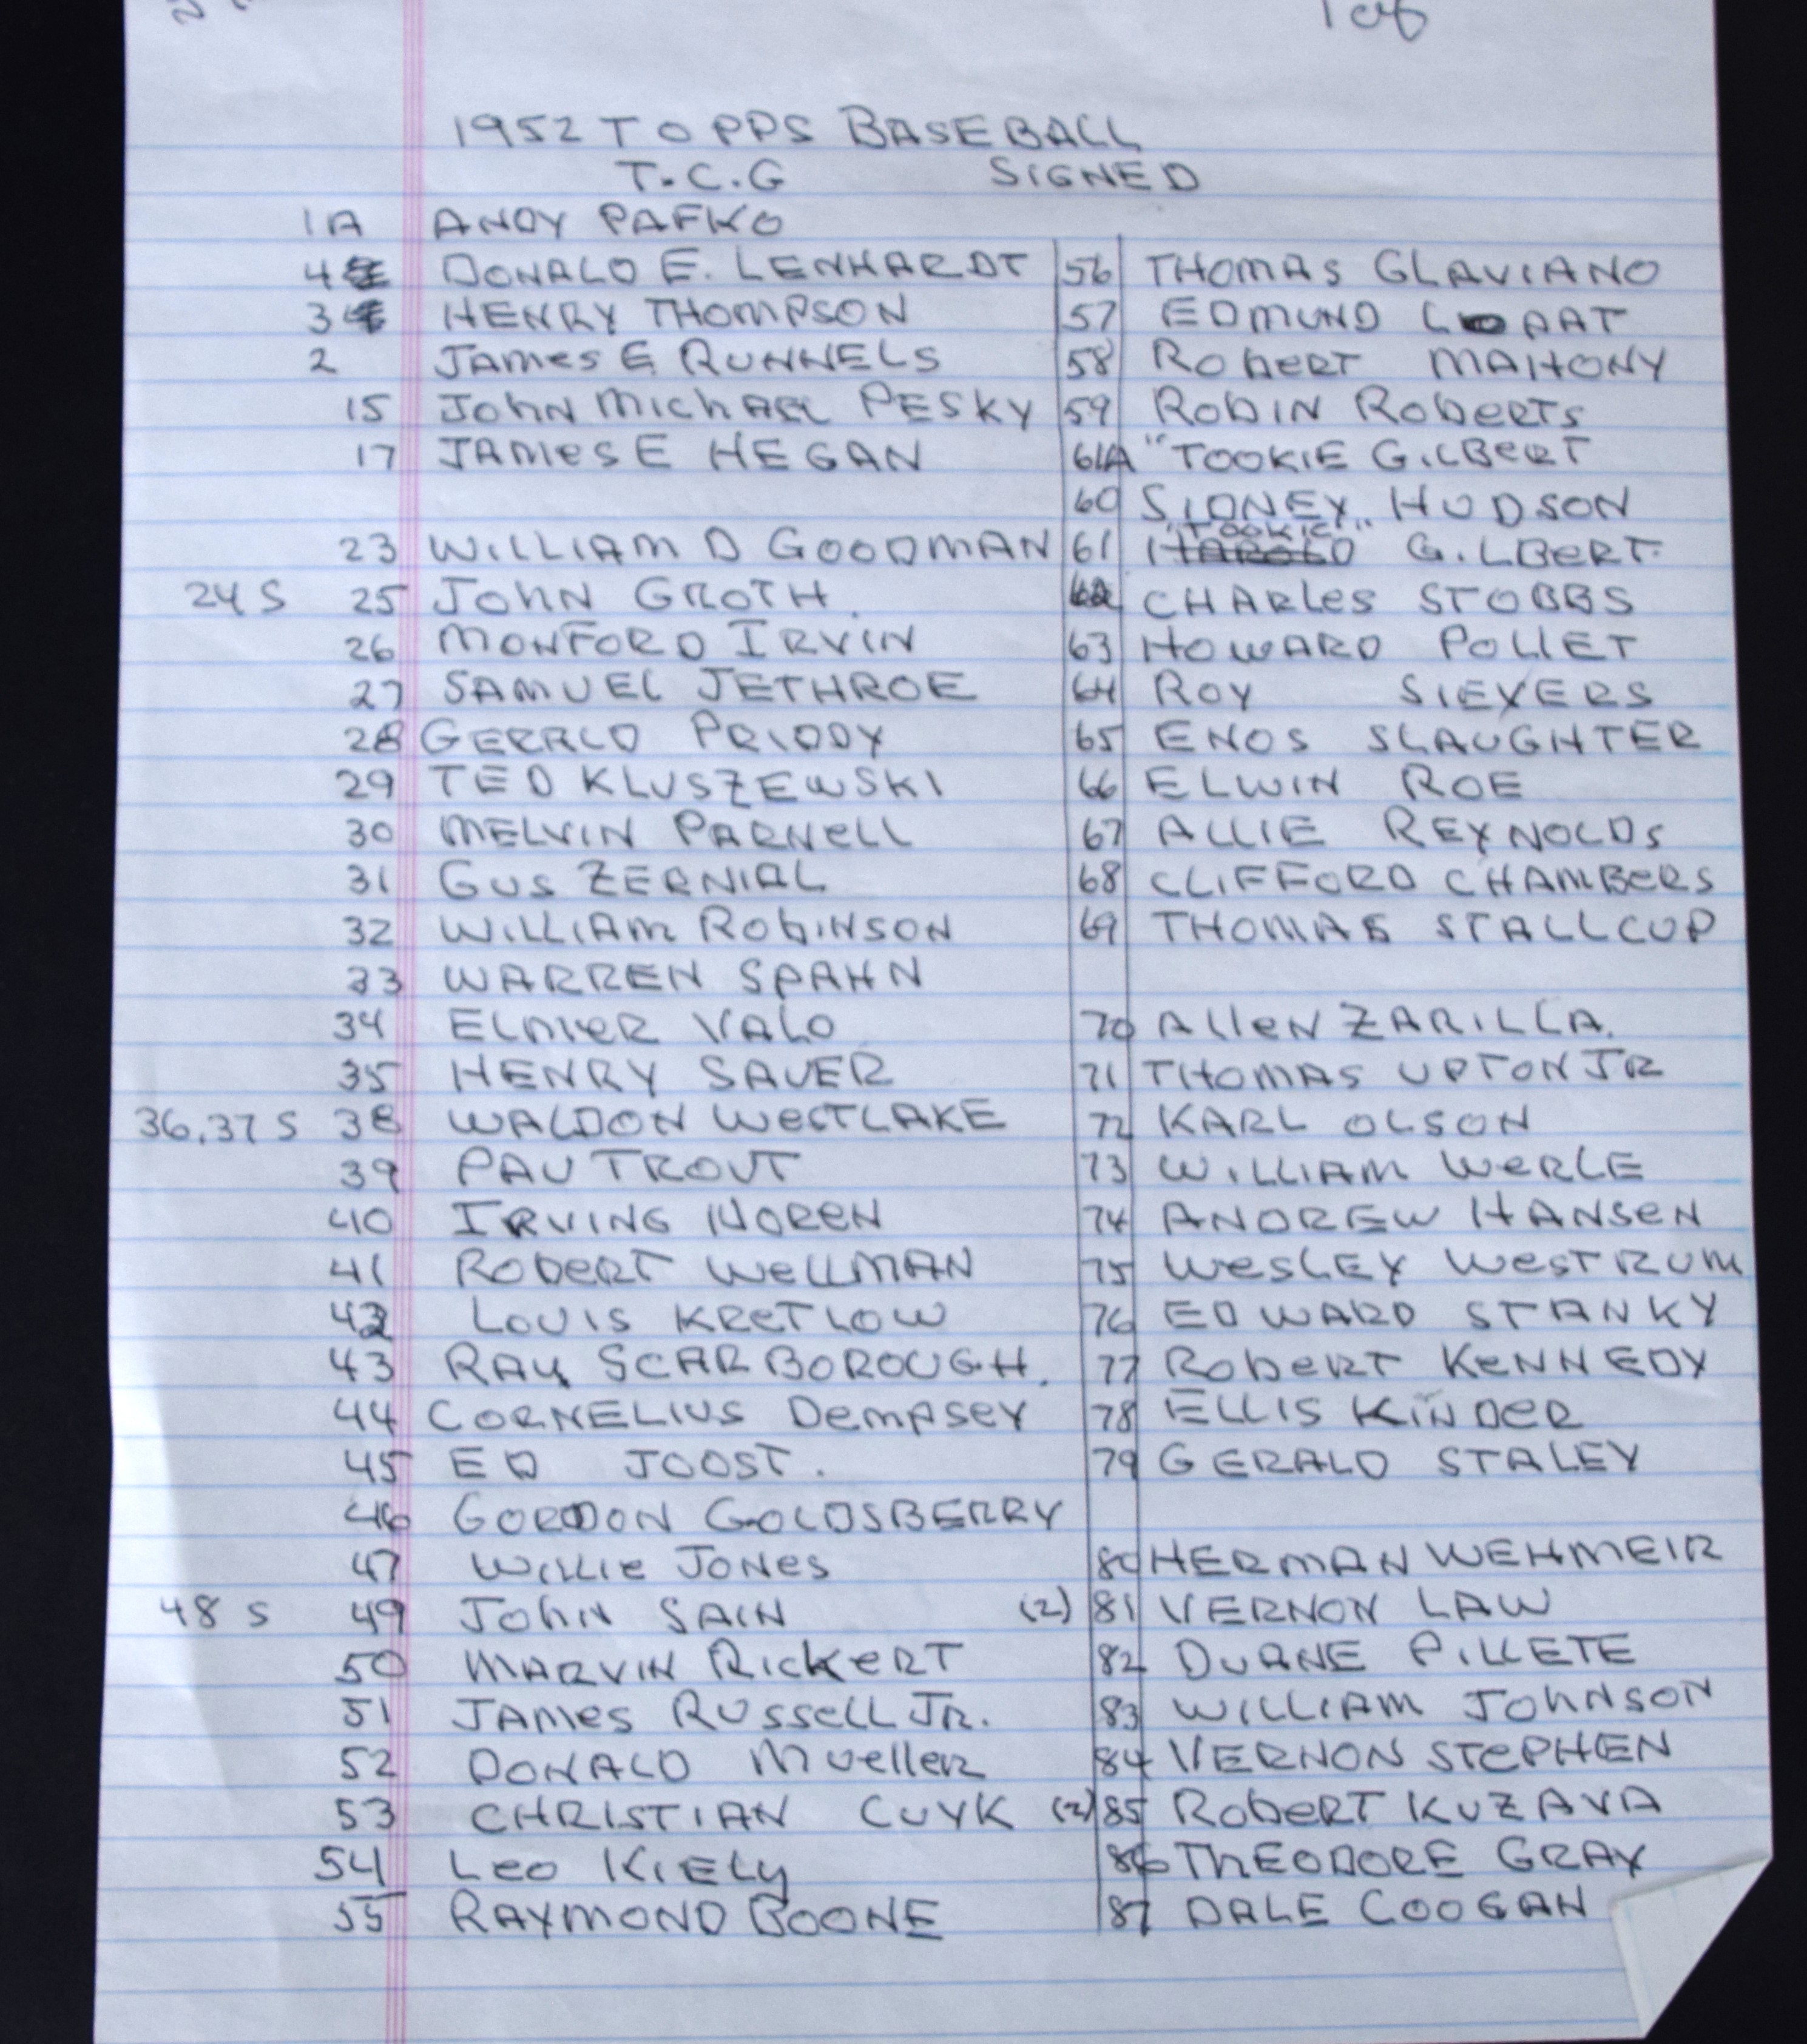 1 of
1952 TOPPS BASEBALL
T.C.G SIGNED
1A ANDY PAFKO
4 DONALD E. LENHARDT
3 HENRY THOMPSON
2 James E RUNNELS
15 John Michael PESKY
17 JAMES E HEGAN
23 WILLIAM D GOODMAN
24 S 25 JOHN GROTH.
26 MONFORD IRVIN
27 SAMUEL JETHROE
28 GERALD PRIDDY
29 TED KLUSZEWSKI
30 MELVIN PARNELL
31 GUS ZERNIAL
32 WILLIAM ROBINSON
33 WARREN SPAHN
34 ELMER VALO
35 HENRY SAUER
36.37 S 38 WALDON WESTLAKE
39 PAU TROUT
40 IRVING NOREN
41 ROBERT WELLMAN
42 LOUIS KRETLOW
43 RAY SCARBOROUGH.
44 CORNELIUS DEMPSEY
45 ED JOOST.
46 GORDON GOLDSBERRY
47 WILLIE JONES
48 S 49 JOHN SAIN
50 MARVIN RICKERT
51 JAMES RUSSELL JR.
52 DONALD MUELLER
53 CHRISTIAN CUYK
54 LEO KIELY
55 RAYMOND BOONE
56 THOMAS GLAVIANO
57 EDMUND LOPAT
58 ROBERT MAHONY
59 ROBIN ROBERTS
61A "TOOKIE GILBERT
60 SIDNEY HUDSON
"TOOKIE"
61 HAROLD GILBERT.
62 CHARLES STOBBS
63 HOWARD POLLET
64 ROY SIEVERS
65 ENOS SLAUGHTER
66 ELWIN ROE
67 ALLIE REYNOLDS
68 CLIFFORD CHAMBERS
69 THOMAS STALLCUP
70 ALLEN ZARILLA.
71 THOMAS UPTON JR
72 KARL OLSON
73 WILLIAM WERLE
74 ANDREW HANSEN
75 WESLEY WESTRUM
76 EDWARD STANKY
77 ROBERT KENNEDY
78 ELLIS KINDER
79 GERALD STALEY
80 HERMAN WEHMEIR
(2) 81 VERNON LAW
82 DUANE PILLETE
83 WILLIAM JOHNSON
84 VERNON STEPHEN
(2) 85 ROBERT KUZAVA
86 THEODORE GRAY
87 DALE COOGAN